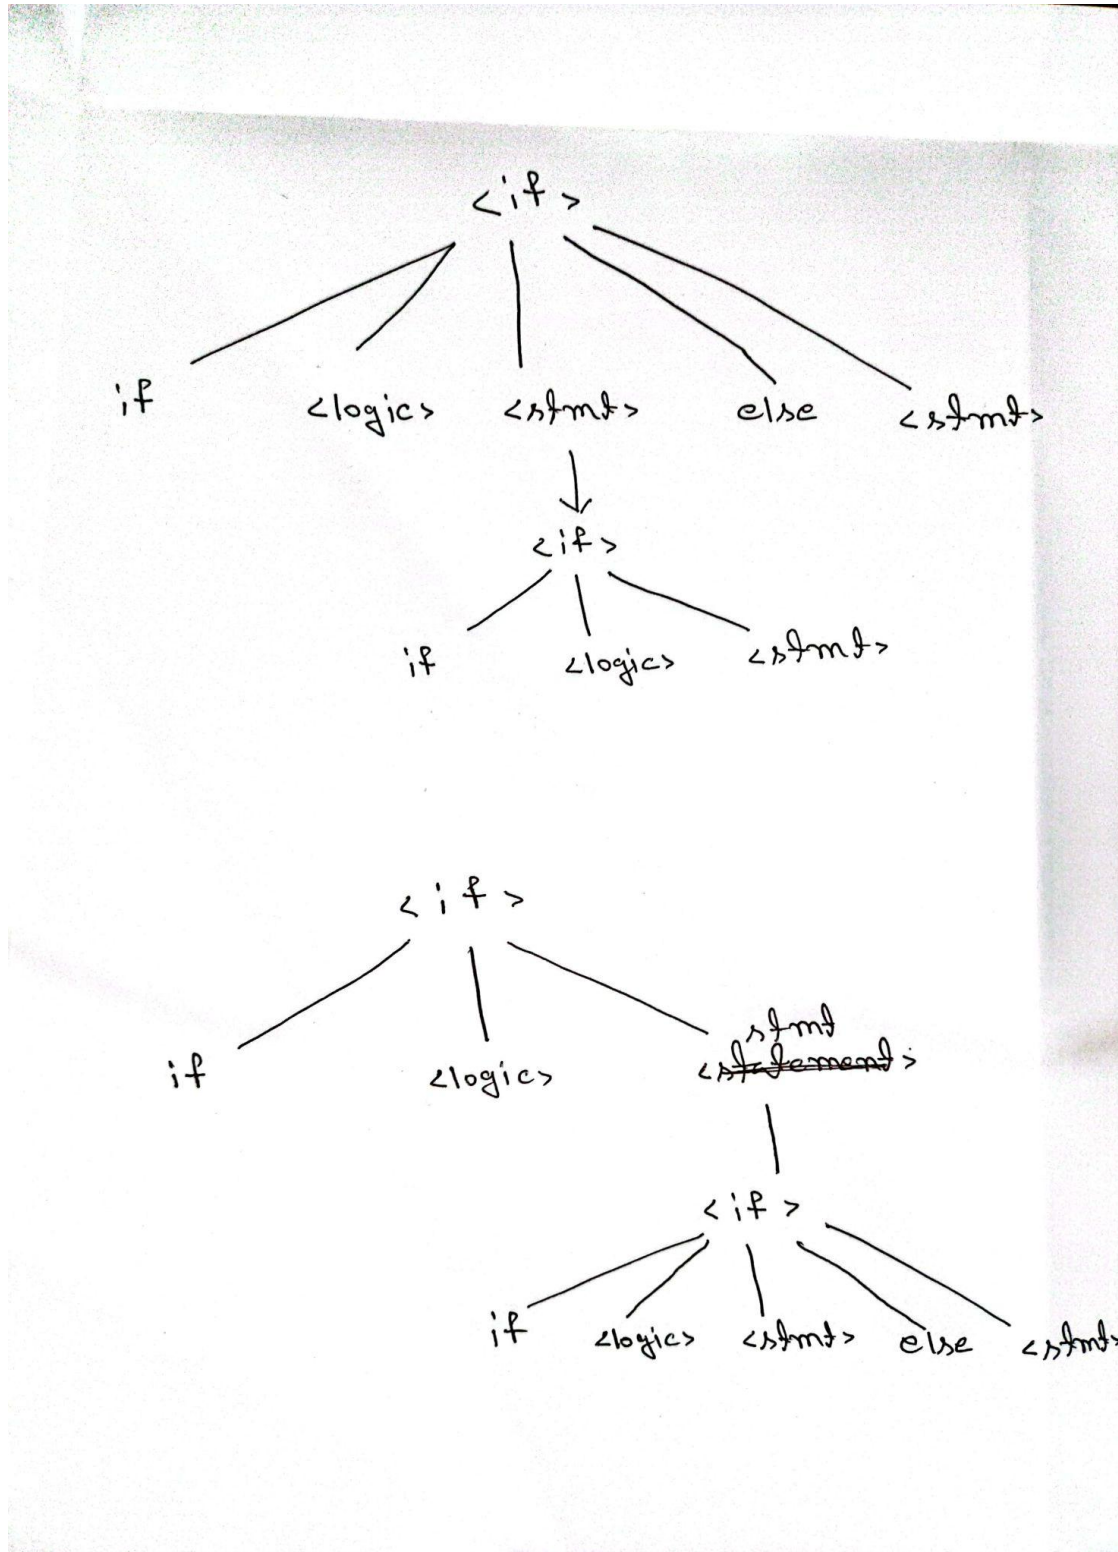 <if>
if <logic> <stmt> else <stmt>
<if>
if <logic> <stmt>
<if>
stmt
if <logic> <statement>
<if>
if <logic> <stmt> else <stmt>